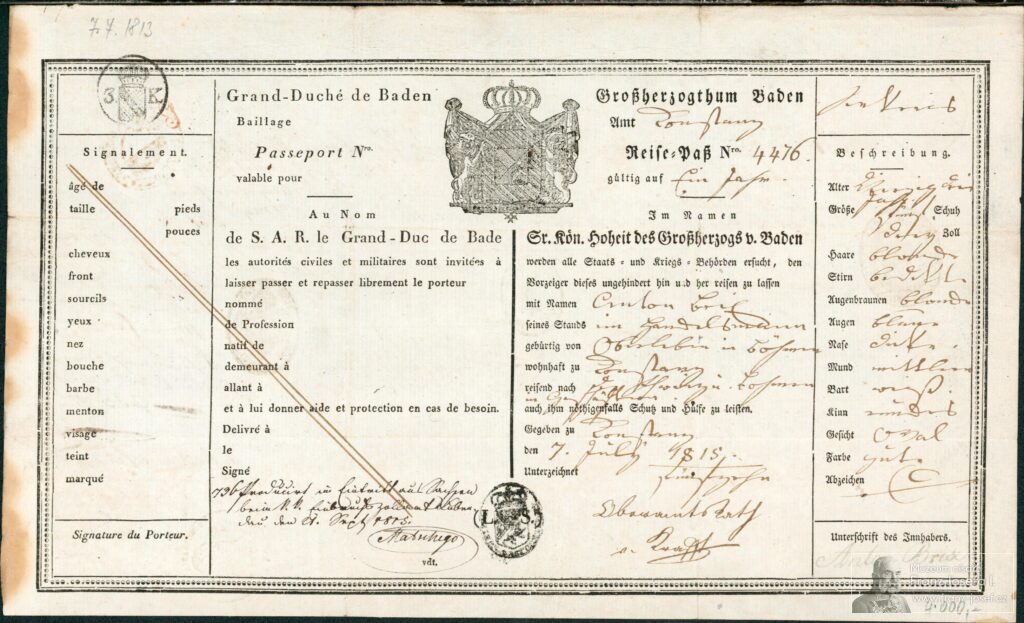 7.7.1813
3 K
Signalement.
âgé de
taille pieds
pouces
cheveux
front
sourcils
yeux
nez
bouche
barbe
menton
visage
teint
marqué
Signature du Porteur.
Grand-Duché de Baden
Baillage
Passeport Nro.
valable pour
Au Nom
de S. A. R. le Grand-Duc de Bade
les autorités civiles et militaires sont invitées à
laisser passer et repasser librement le porteur
nommé
de Profession
natif de
demeurant à
allant à
et à lui donner aide et protection en cas de besoin.
Délivré à
le
Signé
736 Produzirt in Eintritt aus Sachsen
beim k. k.
den 21. Sept 1815.
vdt.
L. S.
Großherzogthum Baden
Amt Constanz
Reise-Paß Nro. 4476.
gültig auf Ein Jahr.
Im Namen
Sr. Kön. Hoheit des Großherzogs v. Baden
werden alle Staats- und Kriegs-Behörden ersucht, den
Vorzeiger dieses ungehindert hin und her reisen zu lassen
mit Namen Anton
seines Stands ein Handelsmann
gebürtig von in Böhmen
wohnhaft zu Constanz
reisend nach Böhmen
auch ihm nöthigenfalls Schutz und Hülfe zu leisten.
Gegeben zu Constanz
den 7. July 1815.
Unterzeichnet fünfzehn
Oberamtsrath
v. Krafft
Beschreibung.
Alter
Jahr
Größe Schuh
Zoll
Haare blonde
Stirn bedekt
Augenbraunen blonde
Augen blaue
Nase dike
Mund mittlern
Bart
Kinn rundes
Gesicht oval
Farbe gute
Abzeichen
Unterschrift des Innhabers.
Anton
Muzeum císaře
Františka Josefa I.
4.000,-